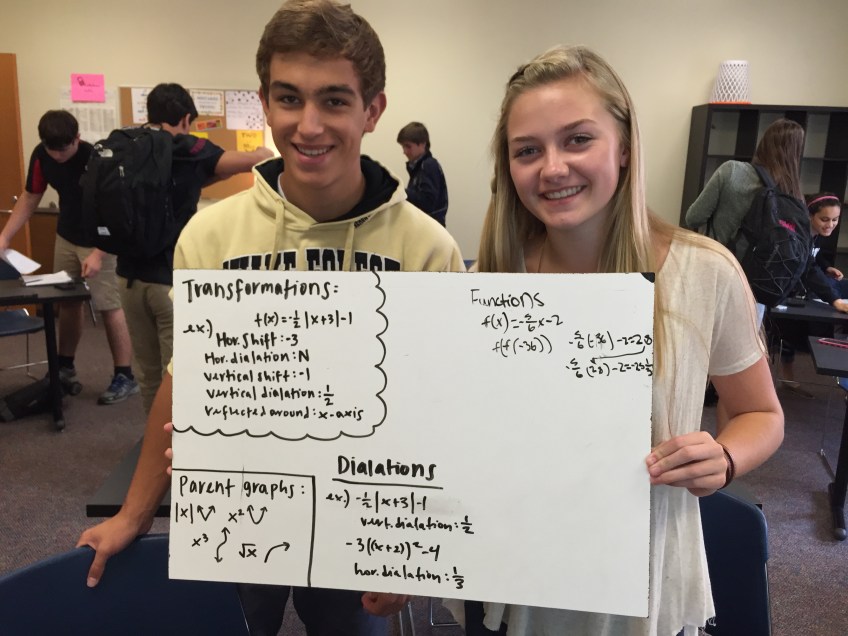 Transformations:
ex.) f(x)=-½|x+3|-1
Hor. Shift: -3
Hor. dialation: N
vertical shift: -1
vertical dialation: ½
reflected around: x-axis
Functions
f(x)=-5/6x-2
f(f(-36)) -5/6(-36)-2=28
-5/6(28)-2=-25⅓
Parent graphs:
|x| x²
x³ √x
Dialations
ex.) -½|x+3|-1
vert. dialation: ½
-3((x+2))²-4
hor. dialation: ⅓